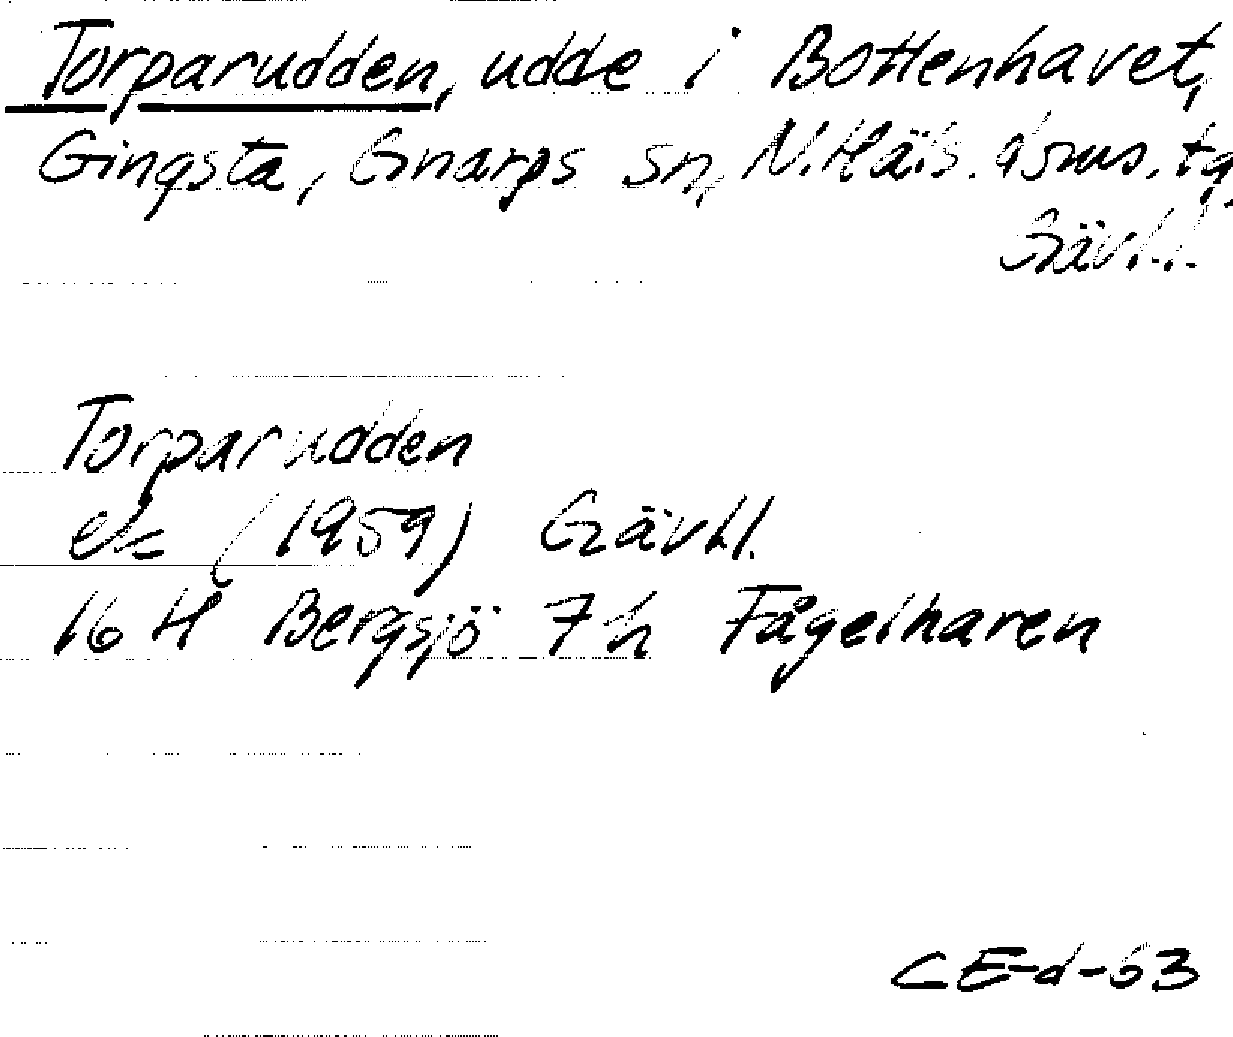 Torparudden, udde i Bottenhavet,
Gingsta, Gnarps sn, N.Häls. dsms. tg
Gävl.l.
Torparudden
ek (1959) Gävl.l.
16 H Bergsjö 7h Fågelharen
CE-d-63